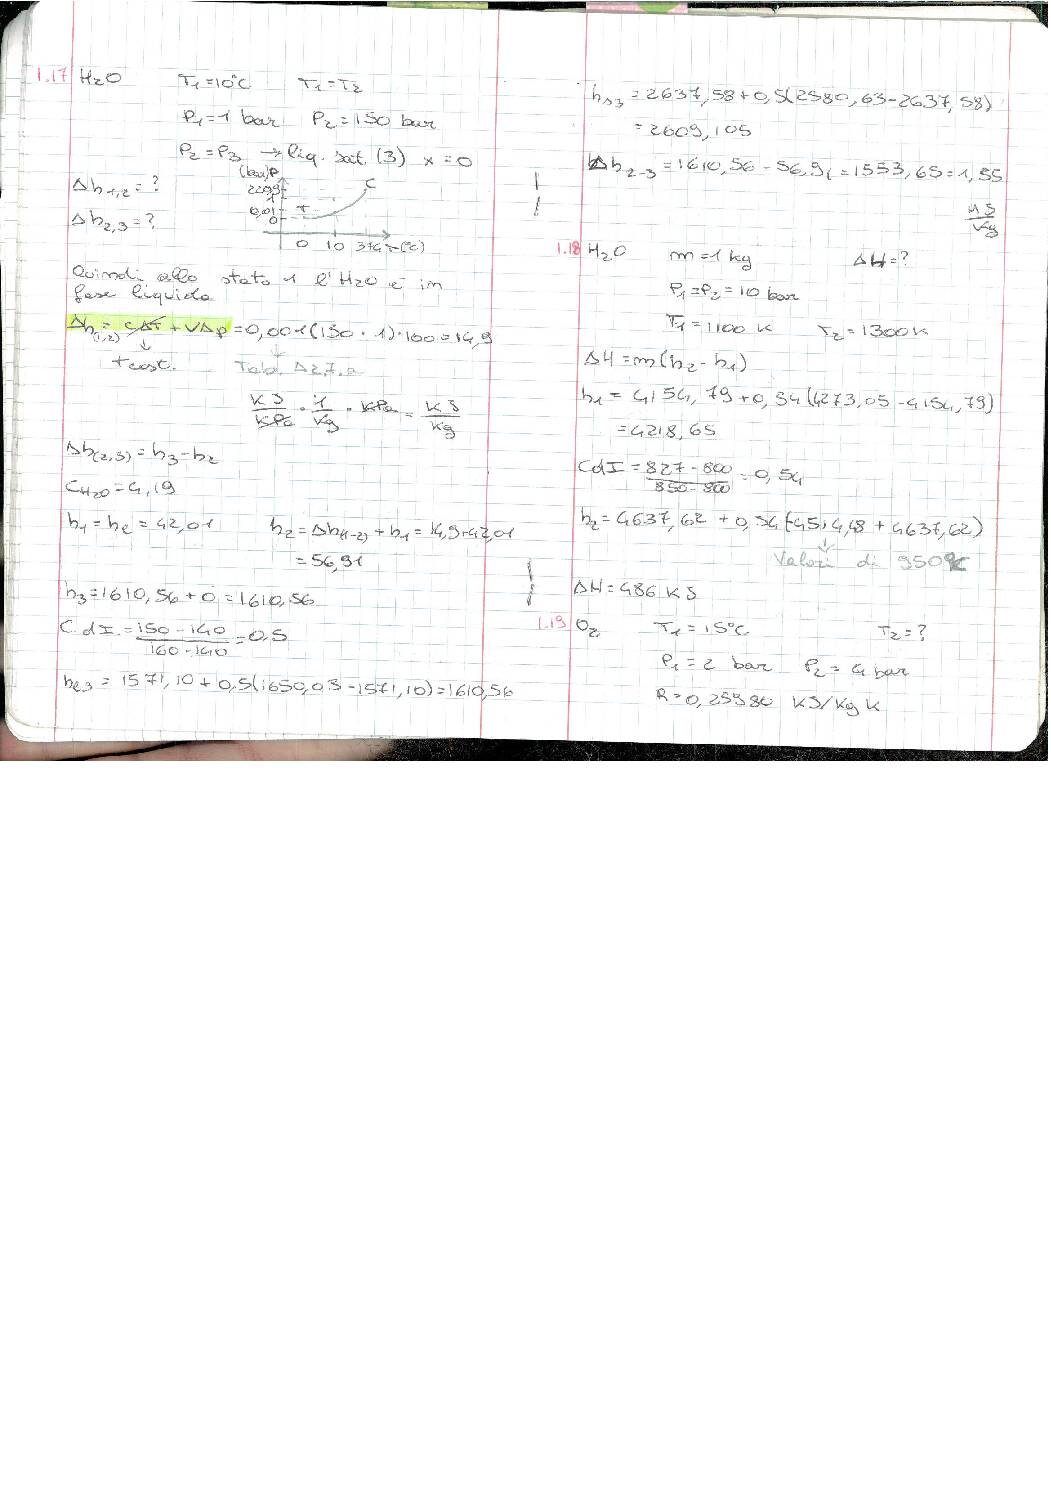 1.17 H2O T1=10°C T1=T2
P1=1 bar P2=150 bar
P2=P3 → liq. sat. (3) x=0
Δh1,2=?
Δh2,3=?
(bar)P
220,9
1
0,01
0
T
C
0 10 374 T(°C)
Quindi allo stato 1 l'H2O è in
fase liquida
Δh(1,2)= cΔT + vΔp=0,001(150-1)·100=14,9
↓
Tcost.
↓
Tab. A2.7.a
KJ/KPa · 1/Kg · KPa = KJ/Kg
Δh(2,3)=h3-h2
CH2O=4,19
h1=he=42,01 h2=Δh(1-2)+h1=14,9+42,01
=56,91
h3=1610,56+0=1610,56
C.dI.=150-140/160-140=0,5
he3=1571,10+0,5(1650,03-1571,10)=1610,56
hs3=2637,58+0,5(2580,63-2637,58)
=2609,105
Δh2-3=1610,56-56,91=1553,65=1,55
MJ/Kg
1.18 H2O m=1 kg ΔH=?
P1=P2=10 bar
T1=1100 K T2=1300K
ΔH=m(h2-h1)
h1=4154,79+0,54(4273,05-4154,79)
=4218,65
CdI=827-800/850-800=0,54
h2=4637,62+0,54(-4514,48+4637,62)
↓
Valori di 950
ΔH=486 KJ
1.19 O2 T1=15°C T2=?
P1=2 bar P2=4 bar
R=0,25980 KJ/Kg K